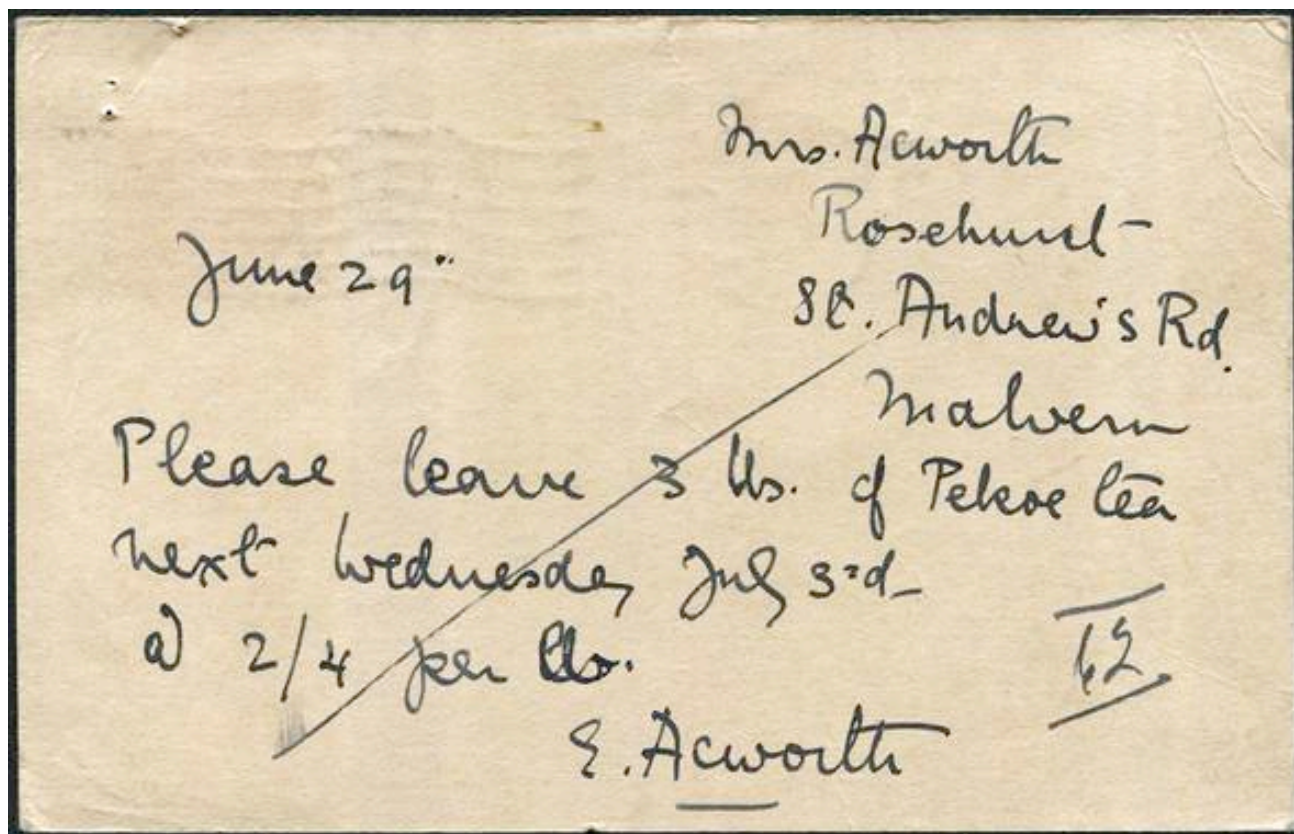 Mrs. Acworth
Rosehurst
St. Andrew's Rd.
Malvern
June 29"
Please leave 3 lbs. of Pekoe tea
next Wednesday July 3rd
@ 2/4 per lb.
62
E. Acworth